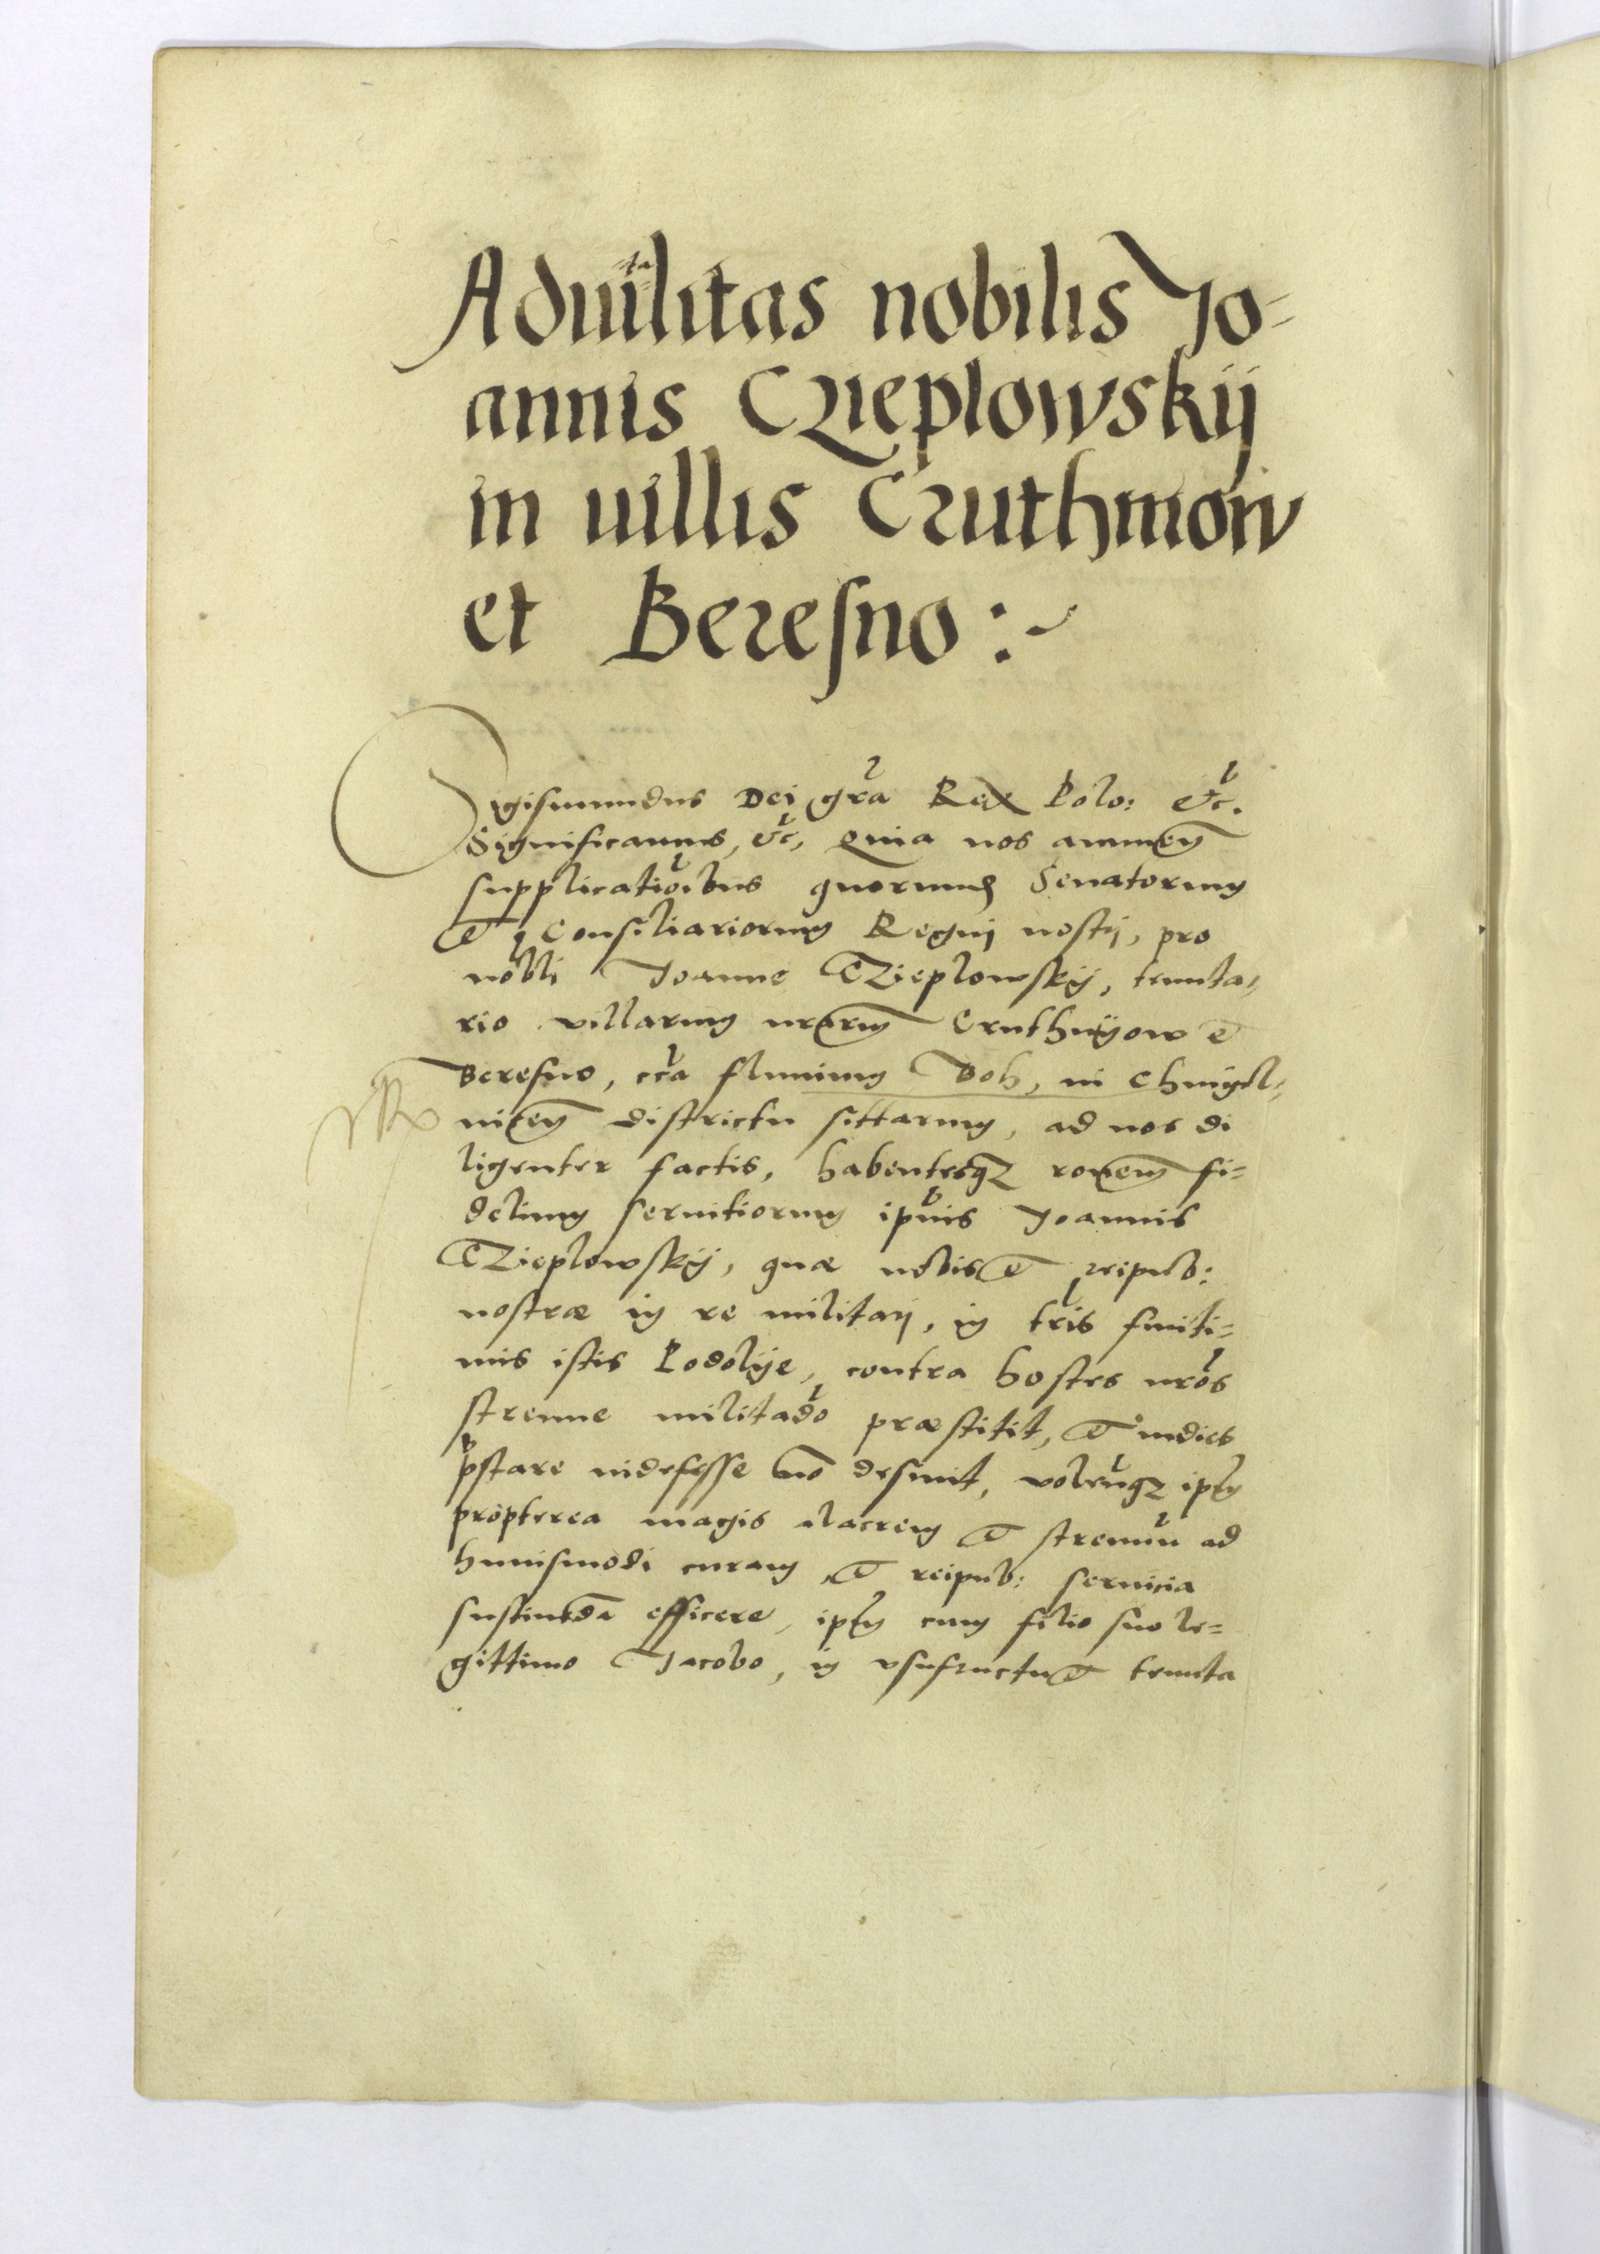 Aduitalitas nobilis Jo-
annis Czieplowskij
in uillis Cruthniow
et Beresno:~
Sigismundus Dei gra Rex Polo: etc.
Significamus, etc, Quia nos annuen
supplicatioibus quorumd Senatorum
et Consiliariorum Regni nostri, pro
nobli Joanne Czieplowskij, tenuta-
rio villarum nrarum Cruthnijow et
Beresno, cca fluuium Boh, in Chmijel-
nicen districtu sittarum, ad nos di
ligenter factis, habentesqz ronem fi-
delium seruitiorum ipius Joannis
Czieplowskij, quæ nobis et reipub:
nostræ in re militari, in tris finiti-
mis istis Podolije, contra hostes nros
strenue militado præstitit, et indies
pstare indefesse no desinit, volentqz ipm
propterea magis alacrem et strenuu ad
huiusmodi curam et reipub: seruicia
sustineda efficere, ipm cum filio suo le-
gittimo Jacobo, in vsufructu et tenuta